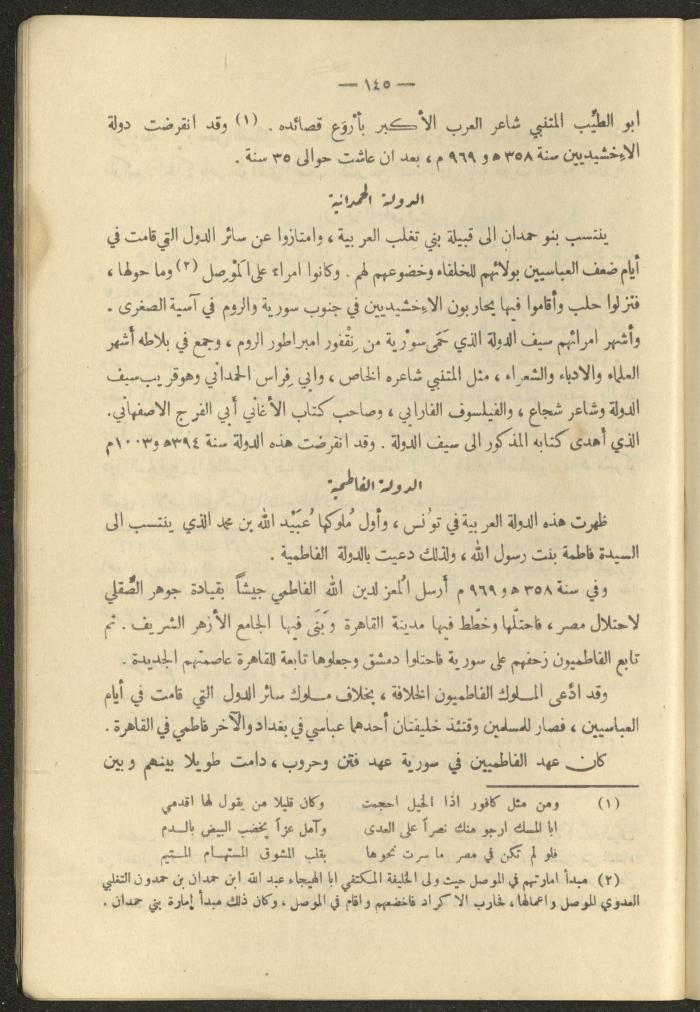 — ١٤٥ —
ابو الطيِّب المتنبي شاعر العرب الأكبر بأرْوَع قصائده . (١) وقد انقرضت دولة
الاءِخشيديين سنة ٣٥٨ ه و ٩٦٩ م ، بعد ان عاشت حوالى ٣٥ سنة .
الدولة الحمدانية
ينتسب بنو حمدان الى قبيلة بني تغلب العربية ، وامتازوا عن سائر الدول التي قامت في
أيام ضعف العباسيين بولائهم للخلفاء وخضوعهم لهم . وكانوا امراء على المَوْصِل (٢) وما حولها ،
فنزلوا حلب وأقاموا فيها يحاربون الاءِخشيديين في جنوب سورية والروم في آسية الصغرى .
وأشهر امرائهم سيف الدولة الذي حَمَى سوْرية من نِقْفور امبراطور الروم ، وجمع في بلاطه أشهر
العلماء والادباء والشعراء ، مثل المتنبي شاعره الخاص ، وابي فِراس الحمداني وهو قريب سيف
الدولة وشاعر شجاع ، والفيلسوف الفارابي ، وصاحب كتاب الأغاني أبي الفرج الاصفهاني.
الذي أهدى كتابه المذكور الى سيف الدولة . وقد انقرضت هذه الدولة سنة ٣٩٤ه و١٠٠٣م
الدولة الفاطمية
ظهرت هذه الدولة العربية في توُنس ، وأول مُلوكها عُبَيْد الله بن محمد الذي ينتسب الى
السيدة فاطمة بنت رسول الله ، ولذلك دعيت بالدولة الفاطمية .
وفي سنة ٣٥٨ ه و ٩٦٩ م أرسل المُعز لدين الله الفاطمي جيشاً بقيادة جوهر الصِّقلي
لاحتلال مصر ، فاحتلّها وخطّط فيها مدينة القاهرة وبَنَى فيها الجامع الأزهر الشريف . ثم
تابع الفاطميون زحفهم على سورية فاحتلوا دمشق وجعلوها تابعة للقاهرة عاصمتهم الجديدة .
وقد ادَّعى الملوك الفاطميون الخلافة ، بخلاف ملوك سائر الدول التي قامت في أيام
العباسيين ، فصار للمسلمين وقتئذ خليفتان أحدهما عباسي في بغداد والآخر فاطمي في القاهرة .
كان عهد الفاطميين في سورية عهد فتن وحروب ، دامت طويلا بينهم وبين
(١) ومن مثل كافور اذا الخيل احجمت وكان قليلا من يقول لها اقدمي
ابا المسك ارجو منك نصراً على العدى وآمل عزاً يخضب البيض بالدم
فلو لم تكن في مصر ما سرت نحوها بقلب المشوق المستهام المتيم
(٢) مبدأ امارتهم في الموصل حيث ولى الخليفة المكتفي ابا الهيجاء عبد الله ابن حمدان بن حمدون التغلبي
العدوي الموصل واعمالها ، فحارب الاكراد فاخضعهم واقام في الموصل ، وكان ذلك مبدأ إمارة بني حمدان .